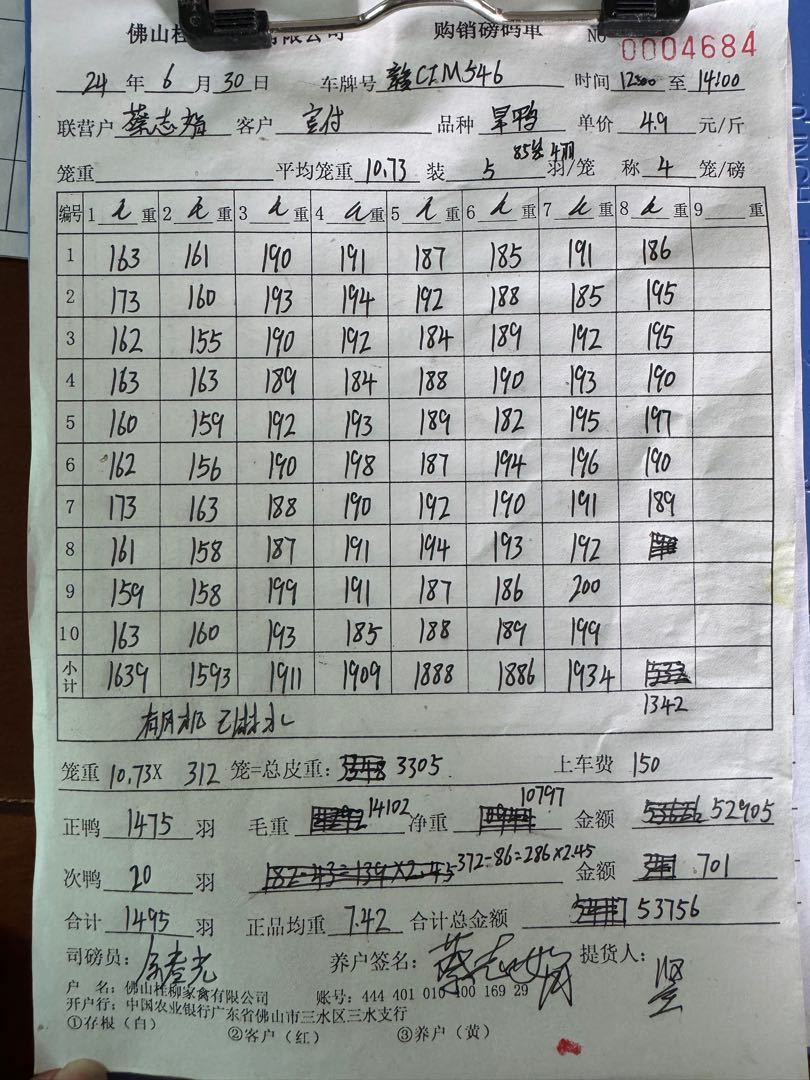 佛山桂 有限公司 购销磅码单 No 0004684
24 年 6 月 30 日 车牌号 赣CIM546 时间 12:00 至 14:00
联营户 蔡志娟 客户 客户 品种 旱鸭 单价 4.9 元/斤
85笼4羽
笼重 平均笼重 10.73 装 5 羽/笼 称 4 笼/磅
编号 1 重 2 重 3 重 4 重 5 重 6 重 7 重 8 重 9 重
1 163 161 190 191 187 185 191 186
2 173 160 193 194 192 188 185 195
3 162 155 190 192 184 189 192 195
4 163 163 189 184 188 190 193 190
5 160 159 192 193 189 182 195 197
6 162 156 190 198 187 194 196 190
7 173 163 188 190 192 190 191 189
8 161 158 187 191 194 193 192
9 159 158 199 191 187 186 200
10 163 160 193 185 188 189 199
小计 1639 1593 1911 1909 1888 1886 1934
1342
已淋水
笼重 10.73X 312 笼=总皮重: 3305 上车费 150
正鸭 1475 羽 毛重 14102 净重 10797 金额 52905
次鸭 20 羽 182-43=139×2.45 372-86=286×2.45 金额 701
合计 1495 羽 正品均重 7.42 合计总金额 53756
司磅员: 养户签名: 蔡志娟 提货人:
户 名: 佛山桂柳家禽有限公司 账号: 444 401 010 400 169 29
开户行: 中国农业银行广东省佛山市三水区三水支行
①存根（白） ②客户（红） ③养户（黄）